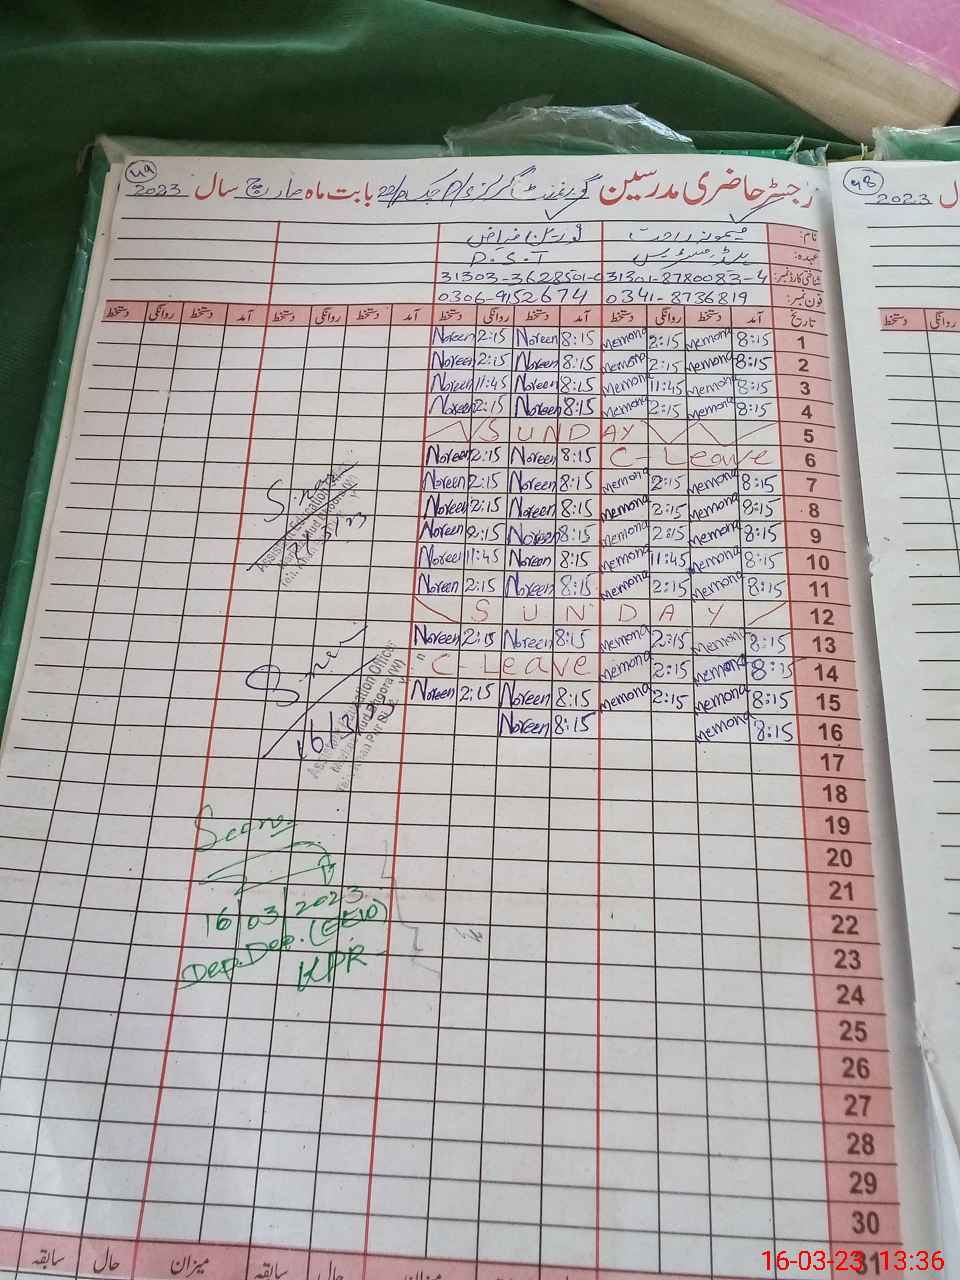 49
رجسٹر حاضری مدرسین گورنمنٹ گرلز بابت ماہ مارچ سال 2023
48
2023
نام: میمونہ راحت
عہدہ: ہیڈ مسٹریس D.S.T
شناختی کارڈ نمبر: 31301-8780083-4 31303-3628501-
فون نمبر: 0341-8736819 0306-9152674
تاریخ آمد دستخط روانگی دستخط آمد دستخط روانگی دستخط آمد دستخط روانگی دستخط آمد دستخط روانگی دستخط
روانگی دستخط
1 8:15 Memona 2:15 Memona 8:15 Noreen 2:15 Noreen
2 8:15 Memona 2:15 Memona 8:15 Noreen 2:15 Noreen
3 8:15 Memona 11:45 Memona 8:15 Noreen 11:45 Noreen
4 8:15 Memona 2:15 Memona 8:15 Noreen 2:15 Noreen
5 SUNDAY
6 C-Leave 8:15 Noreen 2:15 Noreen
7 8:15 Memona 2:15 Memona 8:15 Noreen 2:15 Noreen
8 8:15 Memona 2:15 Memona 8:15 Noreen 2:15 Noreen
9 8:15 Memona 2:15 Memona 8:15 Noreen 2:15 Noreen
10 8:15 Memona 11:45 Memona 8:15 Noreen 11:45 Noreen
11 8:15 Memona 2:15 Memona 8:15 Noreen 2:15 Noreen
12 SUNDAY
13 8:15 Memona 2:15 Memona 8:15 Noreen 2:15 Noreen
14 8:15 Memona 2:15 Memona C-Leave
15 8:15 Memona 2:15 Memona 8:15 Noreen 2:15 Noreen
16 8:15 Memona 8:15 Noreen
17
18
19
20
21
22
23
24
25
26
27
28
29
30
31
Seen
16/03/2023
Dep. Deo. (EEW)
KPR
میزان حال سابقہ میزان حال سابقہ
16-03-23 13:36